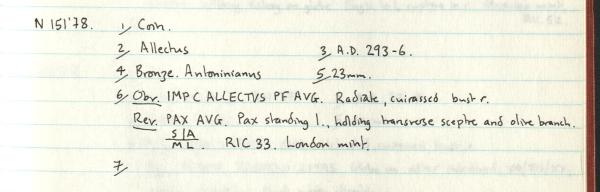 N 151'78. 1, Coin.
2, Allectus 3, A.D. 293-6.
4, Bronze. Antoninianus 5, 23mm.
6, Obv. IMP C ALLECTVS PF AVG. Radiate, cuirassed bust r.
Rev. PAX AVG. Pax standing l., holding transverse sceptre and olive branch.
S|A
ML. RIC 33. London mint.
7,